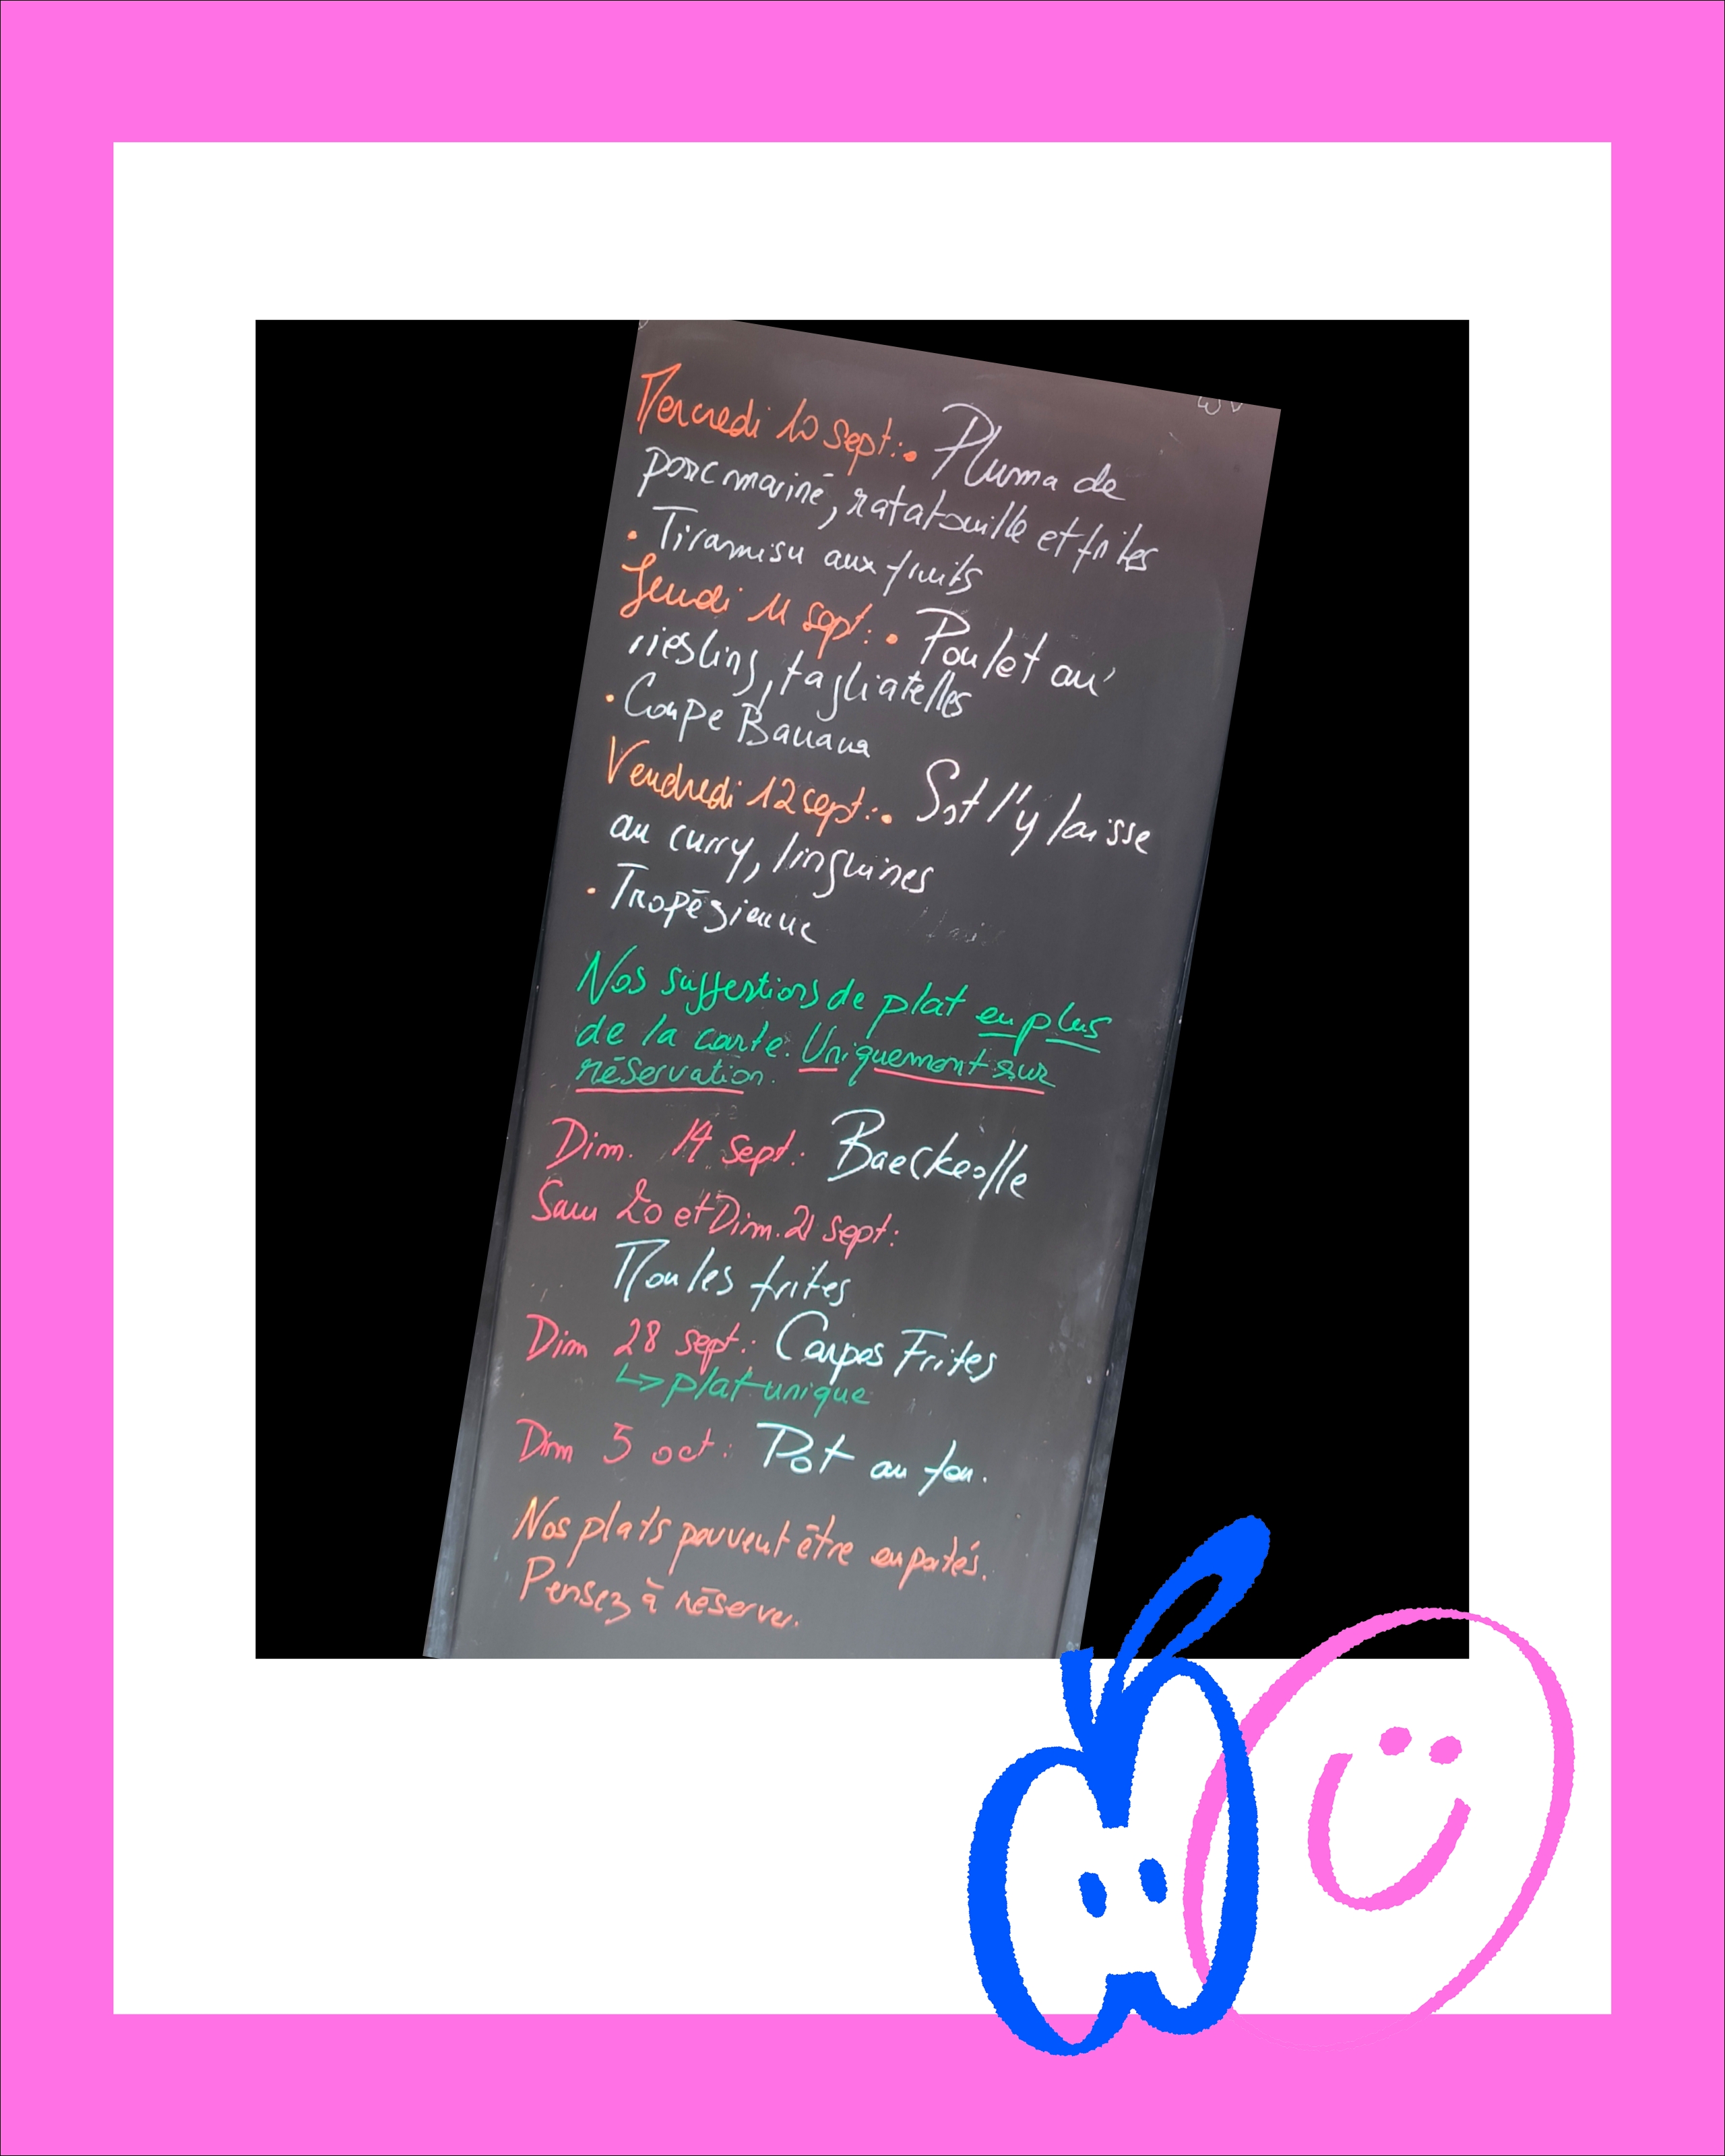 Mercredi 10 sept:• Pluma de
porc mariné, ratatouille et frites
• Tiramisu aux fruits
Jeudi 11 sept:• Poulet au
riesling, tagliatelles
• Coupe Banana
Vendredi 12 sept:• Sot l'y laisse
au curry, linguines
• Tropézienne
Nos suggestions de plat en plus
de la carte. Uniquement sur
réservation.
Dim. 14 sept: Baeckeoffe
Sam 20 et Dim. 21 sept:
Moules frites
Dim 28 sept: Carpes Frites
↳> plat unique
Dim 5 oct: Pot au feu.
Nos plats peuvent être emportés.
Pensez à réserver.